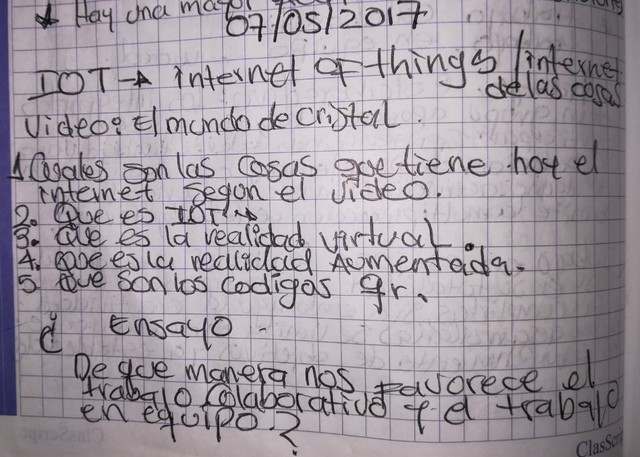 * Hay una mayor
07/05/2017
IOT → internet of things / internet
de las cosas
Video: El mundo de cristal.
1. Cuales son las cosas que tiene hoy el
internet segun el video.
2. Que es IOT
3. Que es la realidad virtual.
4. Que es la realidad Aumentada.
5. Que son los codigos qr.
Ensayo.
De que manera nos Favorece el
trabajo Colaborativo y el trabajo
en equipo?
ClasScri